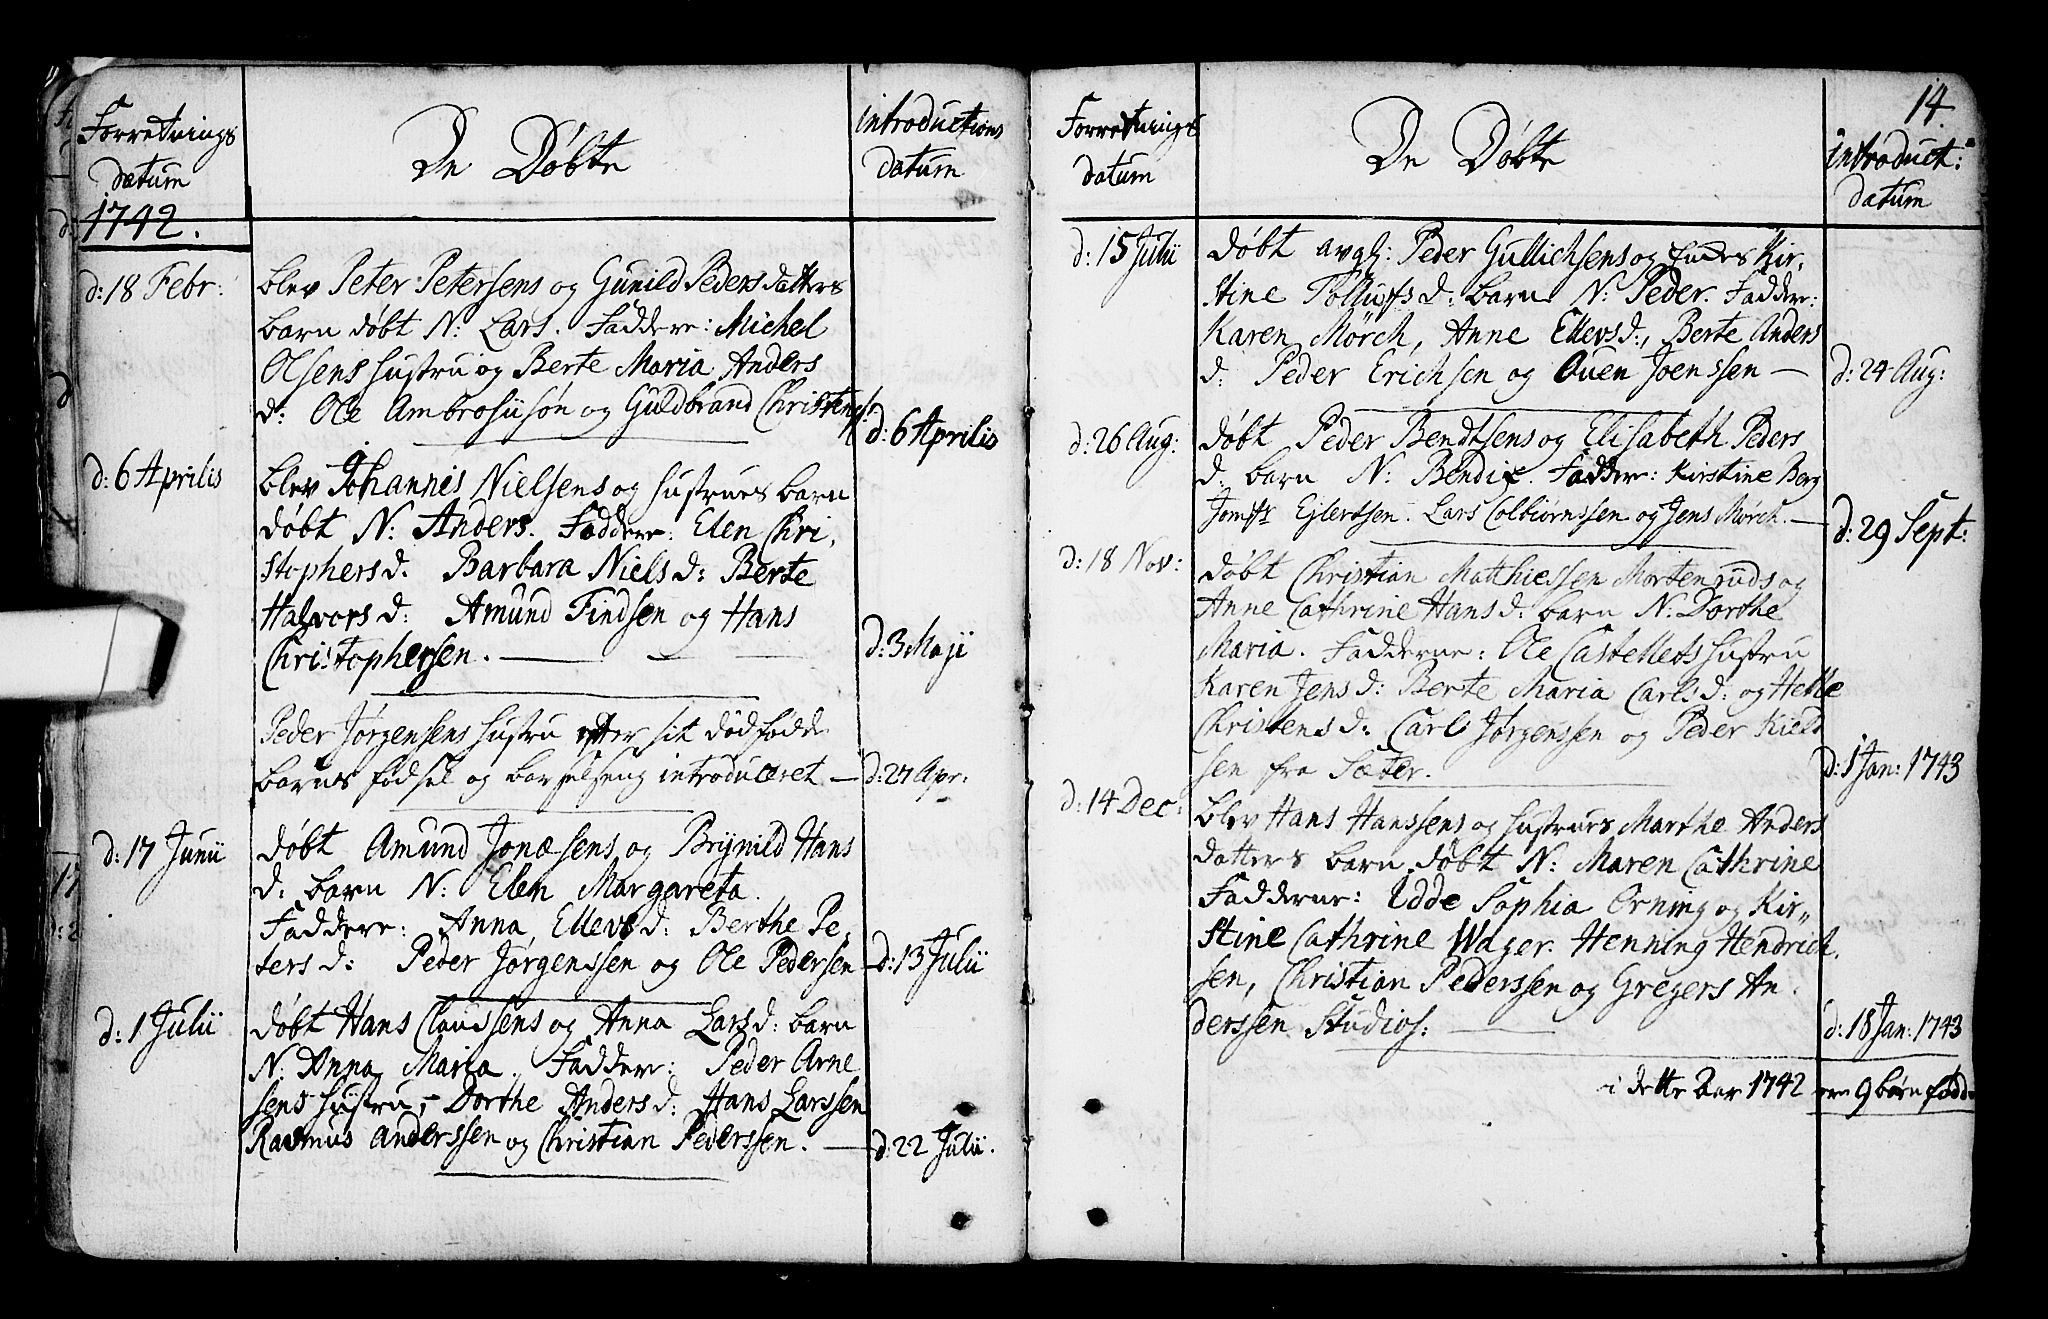 Forretnings
datum
De Døbte
introductions
datum
1742.
d: 18 Febr:
blev Peter Petersens og Gunild Peders datters
barn døbt N: Lars. Faddere: Michel
Olsens hustru og Berte Maria Anders
d: Ole Ambrosiisøn og Guldbrand Christens:
d: 6 Aprilis
d: 6 Aprilis
blev Johannis Nielsens og hustrues barn
døbt N: Anders. Faddere: Elen Chri,
stophers d. Barbara Niels d: Berte
Halvors d: Amund Findsen og Hans
Christophersen.
d: 3 Maji
Peder Jørgensens hustru efter sit dødfødde
barns fødsel og barselseng introduceret —
d: 27 Apr:
d: 17 Junii
døbt Amund Jonæsens og Brynild Hans
d: barn N: Elen Margareta.
Faddere: Anna Ellevs d: Berthe Pe,
ters d: Peder Jørgenssen og Ole Pedersen
d: 13 Julii
d: 1 Julii
døbt Hans Claussens og Anna Lars d: barn
N: Anna Maria. Faddere: Peder Arne
sens hustru, Dorthe Anders d: Hans Larssen
Rasmus Anderssen og Christian Pederssen. —
d: 22 Julii.
14.
Forretnings
datum
De Døbte
introduct:
datum
d: 15 Julii
døbt avgl: Peder Gullichsens og Enkes Kir,
stine Tollufs d: barn N: Peder. Faddere:
Karen Mørch, Anne Ellevs d:, Berte Anders
d: Peder Erichsen og Ouen Joenssen —
d: 24 Aug:
d: 26 Aug:
døbt Peder Bendtsens og Elisabeth Peders
d: barn N: Bendix. Faddere: Kirstine Berg
Jomfr Ejlertsen. Lars Colbiørnssen og Jens Mørch. —
d: 29 Sept:
d: 18 Nov:
døbt Christian Matthiessen Mortenruds og
Anne Cathrine Hans d: barn N: Dorthe
Maria. Fadderne: Ole Castellets hustru
Karen Jens d: Berte Maria Carls d: og Helle
Christens d: Carl Jørgenssen og Peder Kield
sen fra Sæter.
d: 1 Jan: 1743
d: 14 Dec:
blev Hans Hanssens og hustrues Marthe Anders
datters barn døbt N: Maren Cathrine
Fadderne: Edde Sophia Orning og Kir,,
stine Cathrine Wager. Henning Hendrich,
sen, Christian Pederssen og Gregers An,
derssen Studios:
d: 18 Jan: 1743
i dette Aar 1742 ere 9 børn fødde